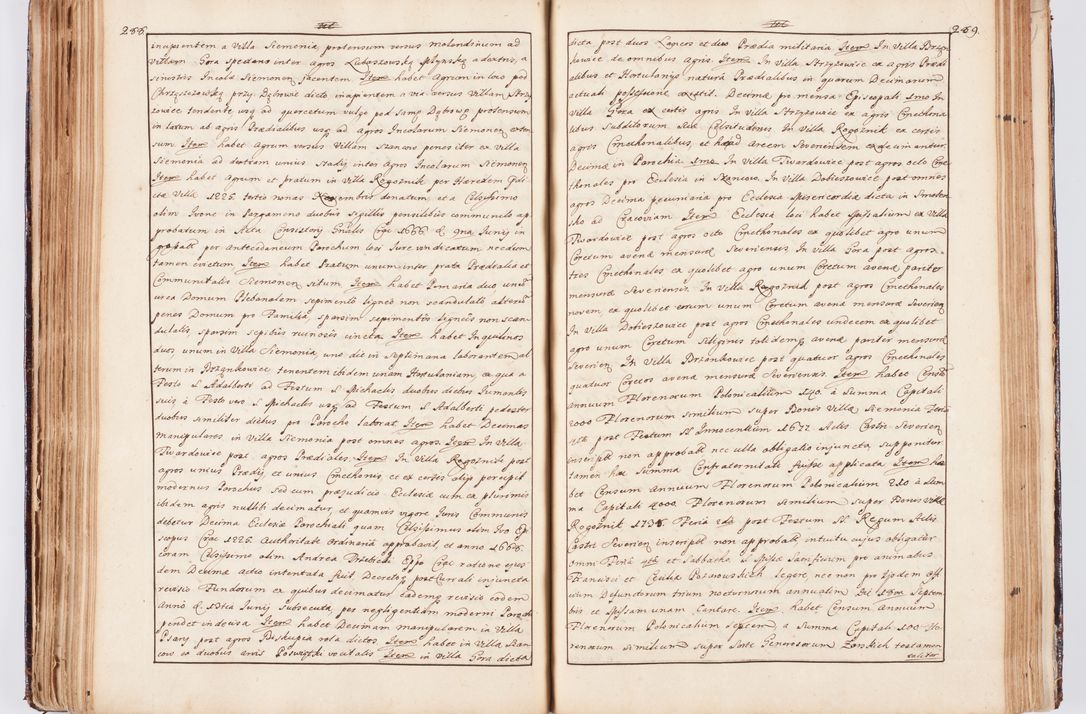 268.
incipientem a Villa Siemonia protensum versus molendinum ad
Villam Gora spectans inter agros Lubaszowską Splynską a dextris, a
sinistris Incola Siemonen jacentem Item habet Agrum in loco pod
Chrząszczowską przy Dąbrowie dicto incipientem a via versus Villam Strzy
zowice tendente usq ad quercetum vulgo pod Samą Dąbrową protensum
in latum ab agris Prædialibus usq ad agros Incolarum Siemonen exten
sum. Item habet Agrum versus Villam Szanow penes iter ex Villa
Siemonia ad dextram unius Stadij inter Agros Incolarum Siemonen
Item habet Agrum et pratum in Villa Rogoznik per Hæredem Ejdi
cæ Villæ 1225. tertio nonas Novembris donatum et a Celsissimo
olim Ivone in Pargameno duobus Sigillis pensilibus communito ap
probatum in Acta Consistorij Gnalis Crac 1666. & 9na Junij in
grossatt per Antecedaneum Parochum loci Jure vindicatum necdum
tamen evictum Item habet Pratum unum inter prata Prædialia et
Communitatis Siemonen situm. Item habet Pomaria duo unum
circa Domum Plebanalem sepimento ligneo non scandulato alterum
penes Domum pro Familia, sparsim sepimentis ligneis non scan
dulatis, sparsim sepibus ruinosis cincta Item habet Ingenuinos
duos unum in Villa Siemonia uno die in Septimana laborantem al
terum in Brzenkowice tenentem ibidem unam Hortulaniam ex qua a
Festo S. Adalberti ad Festum S. Michaelis duobus diebus Jumentis
suis à Festo vero S. Michaelis usq ad Festum S. Adalberti pedester
duobus similiter diebus pro Parocho laborat Item habet Decimas
manipulares in Villa Siemonia post omnes agros. Item In Villa
Twardowice post agros Prædiales. Item In Villa Rogoznik post
agros unius Prædij et unius Cmethonis, et ex certis alijs percipit
modernus Parochus sed cum præjudicio Ecclesiæ cum ex plurimis
ibidem agris nullibi decimatur, et quamvis vigore Juris Communis
debetur Decima Ecclesiæ Parochiali quam Celsissimus olim Ivo Epi
scopus Crac 1225. Authoritate Ordinaria approbavit, et anno 1666.
coram Celsissimo olim Andrea Trzebicki Eppo Crac ratione ejus
dem Decimæ actio intentata fuit, Decretoq postcurrali injuncta
revisio Fundorum ex quibus decimatur eademq revisio eodem
anno & 13tia Junij subsecuta, per negligentiam moderni Parochi
pendet indecisa Item habet Decimam manipularem in Villa
Psary post agros Biskupia rola dictos Item habet in Villa Szan
cow ex duobus arvis Poswiątki vocitatis Item in Villa Gora dicta
269.
dicta post duos Laneos et duo Prædia militaria Item In Villa Brzen
kowice de omnibus agris. Item In Villa Strzyżowice ex agris Prædi
alibus et Hortulanijs naturâ Prædialibus in quarum Decimarum
actuali possessione existit. Decimæ pro mensa Episcopali 1mo In
Villa Gora ex certis agris In Villa Strzyżowice ex agris Cmethona
libus Subditorum Suæ Celsitudinis In Villa Rogoznik ex certis
agris Cmethonalibus, et hæc ad Arcem Severiensem exigun untur.
Decimæ in Parochia 1mo. In Villa Twardowice post agros octo Cme
thonales pro Ecclesia in Szancowo. In Villa Dobieszowice post omnes
agros Decima pecuniaria pro Ecclesia Misericordiæ dicta in Smolen
sko ad Cracoviam Item Ecclesia loci habet Missalium ex Villa
Twardowice post agros octo Cmethonales ex quolibet agro unum
Coretum avenæ mensuræ Severiensis. In Villa Gora post agros
tres Cmethonales ex quolibet agro unum Coretum avenæ pariter
mensuræ Severiensis. In Villa Rogoznik post agros Cmethonales
novem, ex quolibet eorum unum Coretum avenæ mensuræ Severien
In Villa Dobieszowice post agros Cmethonales undecem ex quolibet
agro unum Coretum Siliginis totidemq avenæ pariter mensuræ
Severien In Villa Brzenkowice post quatuor agros Cmethonales
quatuor Coretos avenæ mensuræ Severiensis. Item habet Censum
annuum Florenorum Polonicalium 140. à Summa Capitali
2000 Florenorum similium super Bonis Villæ Siemonia Feria
4ta post Festum SS Innocentium 1677 Actis Castri Severien
inscriptt non approbatt nec ulla obligatio injuncta supponitur
tamen hæc Summa Confraternitati fuisse applicata Item ha
bet Censum Annuum Florenorum Polonicalium 210 à Sum
ma Capitali 4000. Florenorum similium super Bonis Villæ
Rogoźnik 1735. Feria 2da post Festum SS Regum Actis
Castri Severien inscriptt non approbatt intuitu cujus obligatur
omni Feria 4ta et Sabbatho S. Missæ Sacrificium pro animabus
Francisci et Cæciliæ Pozarowskich legere, nec non pro ijsdem offi
cium Defunctorum trium nocturnorum annuatim Die 18va Septem
bris et Missam unam Cantare. Item habet Censum Annuum
Florenorum Polonicalium septem à Summa Capitali 100 Flo
renorum similium super Sorte Generosorum Zorskich testamen
taliter